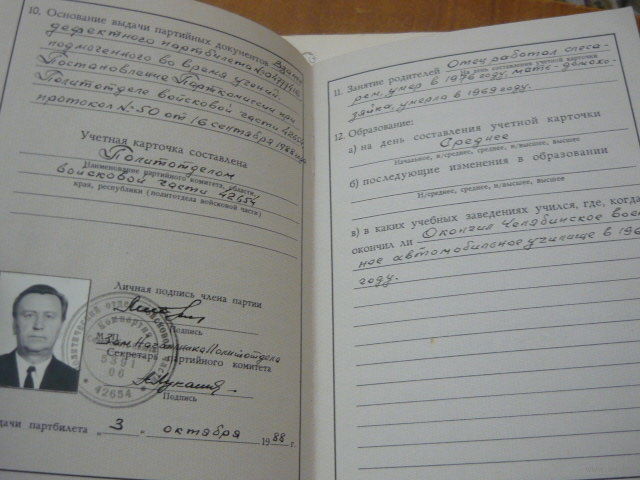 10. Основание выдачи партийных документов Взамен
дефектного партбилета №
подмоченного во время учений.
Постановление Парткомиссии при
Политотделе войсковой части 42654
протокол №50 от 16 сентября 1988
Учетная карточка составлена
Политотделом
Наименование партийного комитета, области,
войсковой части 42654
края, республики (политотдела войсковой части)
Личная подпись члена партии
Подпись
М.П.
Зам Начальника Политотдела
Секретарь партийного комитета
Подпись
дачи партбилета „ 3 „ октября 1988 г.
42654
11. Занятие родителей Отец работал слеса-
На день составления учетной карточки
рем, умер в 1976 году, мать-домохо-
зяйка, умерла в 1969 году.
12. Образование:
а) на день составления учетной карточки
Среднее
Начальное, н/среднее, среднее, н/высшее, высшее
б) последующие изменения в образовании
Н/среднее, среднее, н/высшее, высшее
в) в каких учебных заведениях учился, где, когда
окончил ли Окончил Челябинское воен
ное автомобильное училище в 196
году.